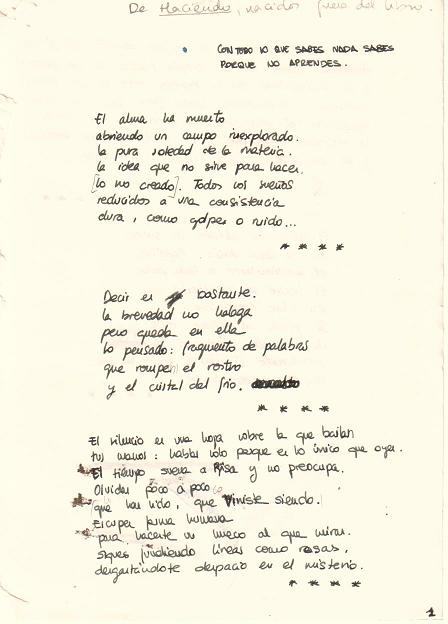 De Haciendo, nacidos fuera del libro.
CON TODO LO QUE SABES NADA SABES
PORQUE NO APRENDES.
El alma ha muerto
abriendo un campo inexplorado.
la pura soledad de la materia.
la idea que no sirve para hacer
[lo no creado]. Todos los sueños
reducidos a una consistencia
dura, como golpes o ruido...
* * * *
Decir es bastante.
la brevedad no halaga
pero queda en ella
lo pensado: fragmento de palabras
que rompen el rostro
y el cristal del frío.
* * * *
El silencio es una hoja sobre la que bailan
tus manos: hablas solo porque es lo único que oyes.
El tiempo suena a Risa y no preocupa.
Olvidas poco a poco
que has sido, que Viniste siendo.
Escupes forma humana
para hacerte un hueco al que miras.
Sigues fundiendo líneas como rosas,
desgastándote despacio en el misterio.
* * * *
1